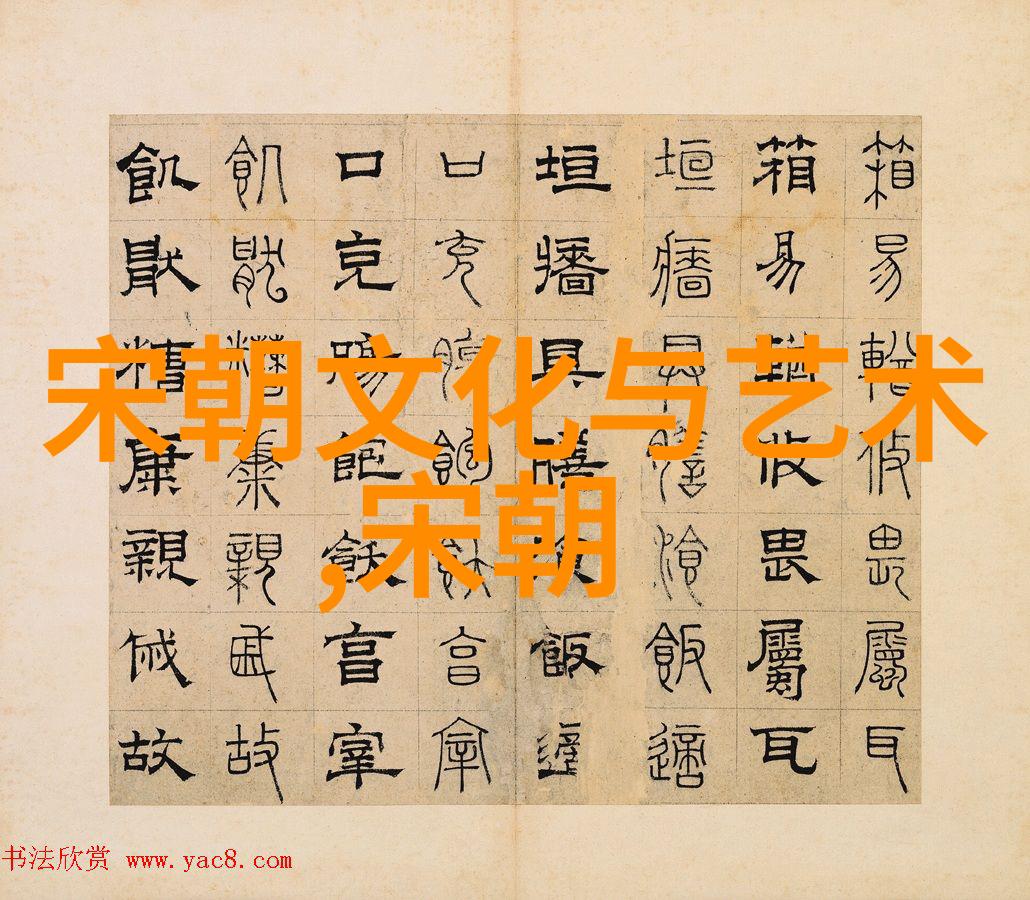 宋朝文化与艺术
,宋朝
箱易輶攸畏屬耳
箱易輶攸畏屬耳
垣牆具膳飡飯適
垣牆具膳飡飯適
口充腸飽飫享宰
口充腸飽飫享宰
飢厭糟糠親戚故
飢厭糟糠親戚故
书法欣赏 www.yac8.com